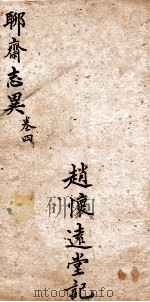 聊齋志異 卷四
趙懷遠堂記